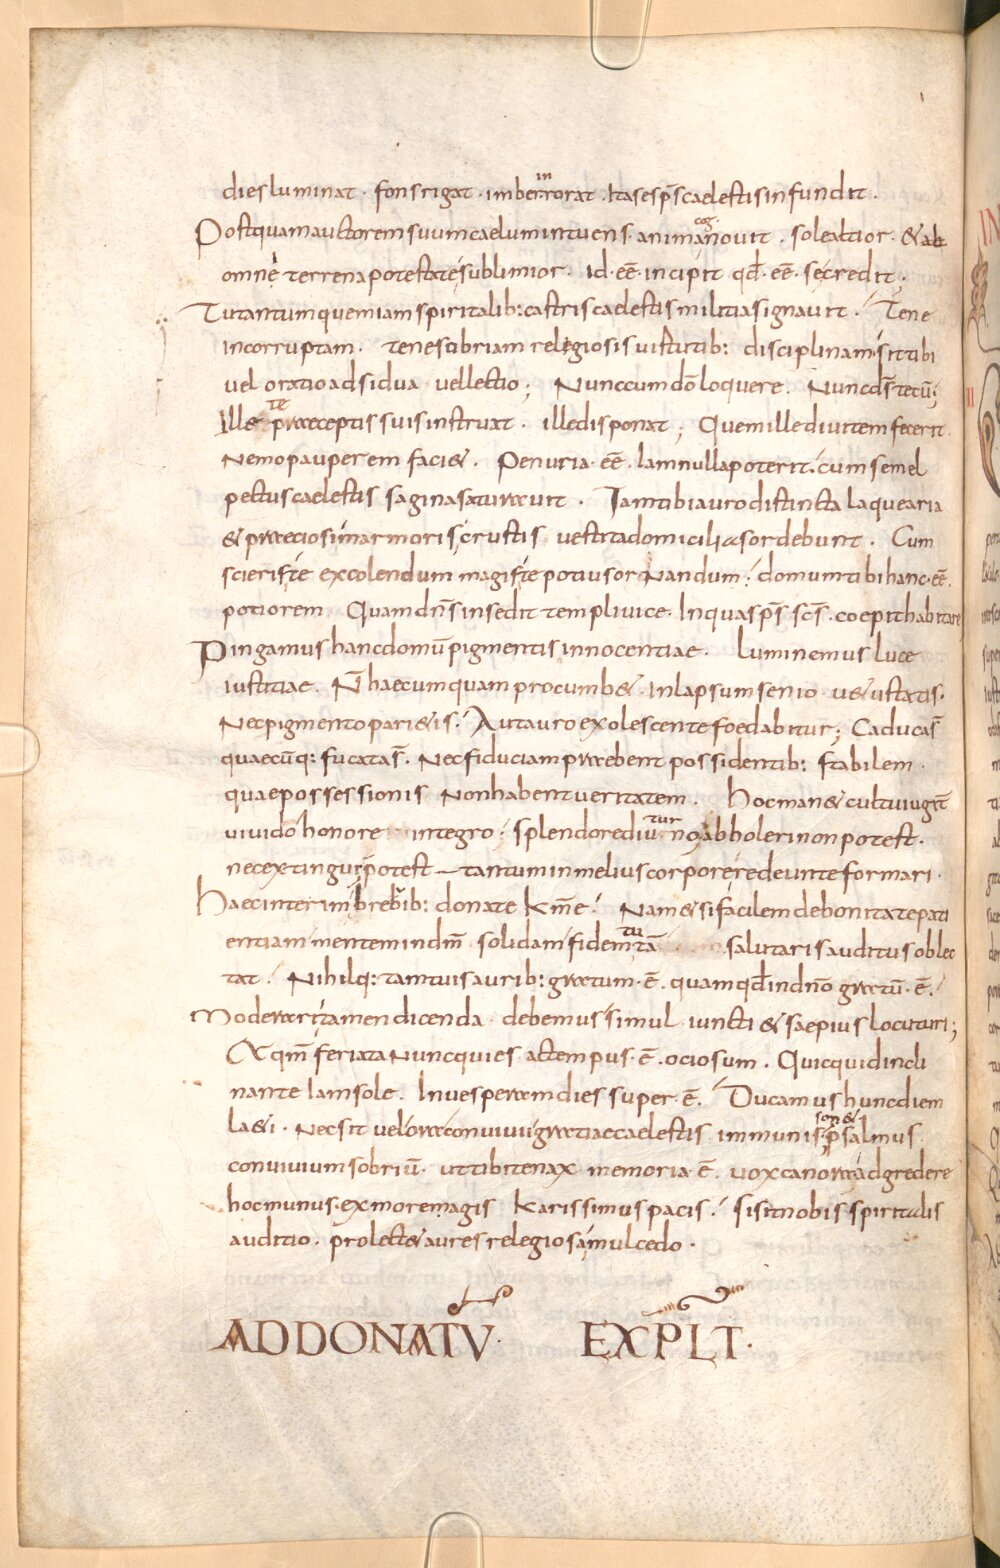 dies luminat · fons rigat · imber inrorat · Ita se sp̄s caelestis infundit ·
Postquam auctorem suum caelum intuens anima cognovit · sole altior · & ab
omnē terrena potestate sublimior · id · eē · incipit qd̄ · eē · se credit ;
Tu tantum quem iam spiritalib: castris caelestis militia signavit · Tene
incorruptam · tene sobriam relegiosis virtutib: disciplinam · sit tibi
vel oratio adsidua vel lectio ; Nunc cum dō loquere · Nunc d̄s tecū ;
Ille te praeceptis suis instruat · ille disponat ; Quem ille divitem fecerit ·
Nemo pauperem faci& · Penuria · eē · Iam nulla poterit · cum semel
pectus caelestis sagina saturavit · Iam tibi auro distincta laquearia
& praeciosi marmoris crustis vestita domicilia sordebunt · Cum
scieris te excolendum magis te potius ornandum : domum tibi hanc · eē ·
potiorem Quam dn̄s insedit templi vice · In qua sp̄s sc̄s · coepit habitare
Pingamus hanc domū pigmentis innocentiae · Luminemus luce
iustitiae · N̄ haec umquam procumb& · in lapsum senio v&ustatis ·
Nec pigmento pari&is · Aut auro exolescente foedabitur ; Caduca s̄
quaecūq: fucata s̄ · Nec fiduciam praebent possidentib: stabilem ·
quae possessionis non habent veritatem · Hoc man& cultu iugit̄
vivido honore integro · splendore diuturno abholeri non potest ·
nec extingui potest — tantum in melius corpore redeunte formari ·
Haec interim brevib: donate km̄e · Nam & si facilem de bonitate pati
entiam mentem in dm̄ solidam fidem tutā salutaris auditus oblec
tat · Nihilq: tam tuis aurib: gratum · ē · quam qd̄ in dn̄o gratū · ē ·
Moderari tamen dicenda debemus simul iuncti & saepius locuturi ;
Ac qm̄ feriata nunc quies ac tempus · ē · ociosum · Quicquid incli
nante iam sole · In vesperam dies super · ē · Ducamus hunc diem
la&i · Nec sit vel ora convivii gratiae caelestis immunis · son& psalmus
convivium sobriū · ut tibi tenax memoria · ē · vox canora adgredere
hoc munus · ex more magis karissimus pacis · si sit nobis spiritalis
auditio · prolect& aures relegiosa mulcedo ·
AD DONATV · EXPLT ·